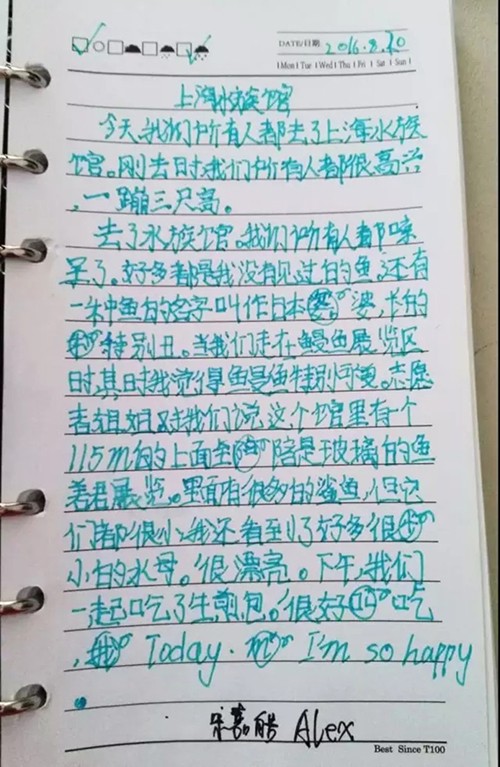 DATE/日期 2016.8.20
Mon Tue Wed Thu Fri Sat Sun
上海水族馆
今天我们所有人都去了上海水族
馆。刚去时我们所有人都很高兴
,一蹦三尺高。
去了水族馆。我们所有人都嗦
呆了。好多都是我没有见过的鱼,还有
一种鱼的名字叫作日本 婆,长的
特别丑。当我们走在鳗鱼展览区
时,其日时我觉得鱼鳗鱼特别可爱。志愿
者姐姐对我们说这个馆里有一个
115m的上面全 陪是玻璃的鱼
展览。里面有很多的鲨鱼,但它
们都很小,我还看到了好多很
小的水母。很漂亮。下午,我们
一起吃了生煎包。很好 吃
, Today. I'm so happy
.
宋嘉皓 Alex
Best Since T100